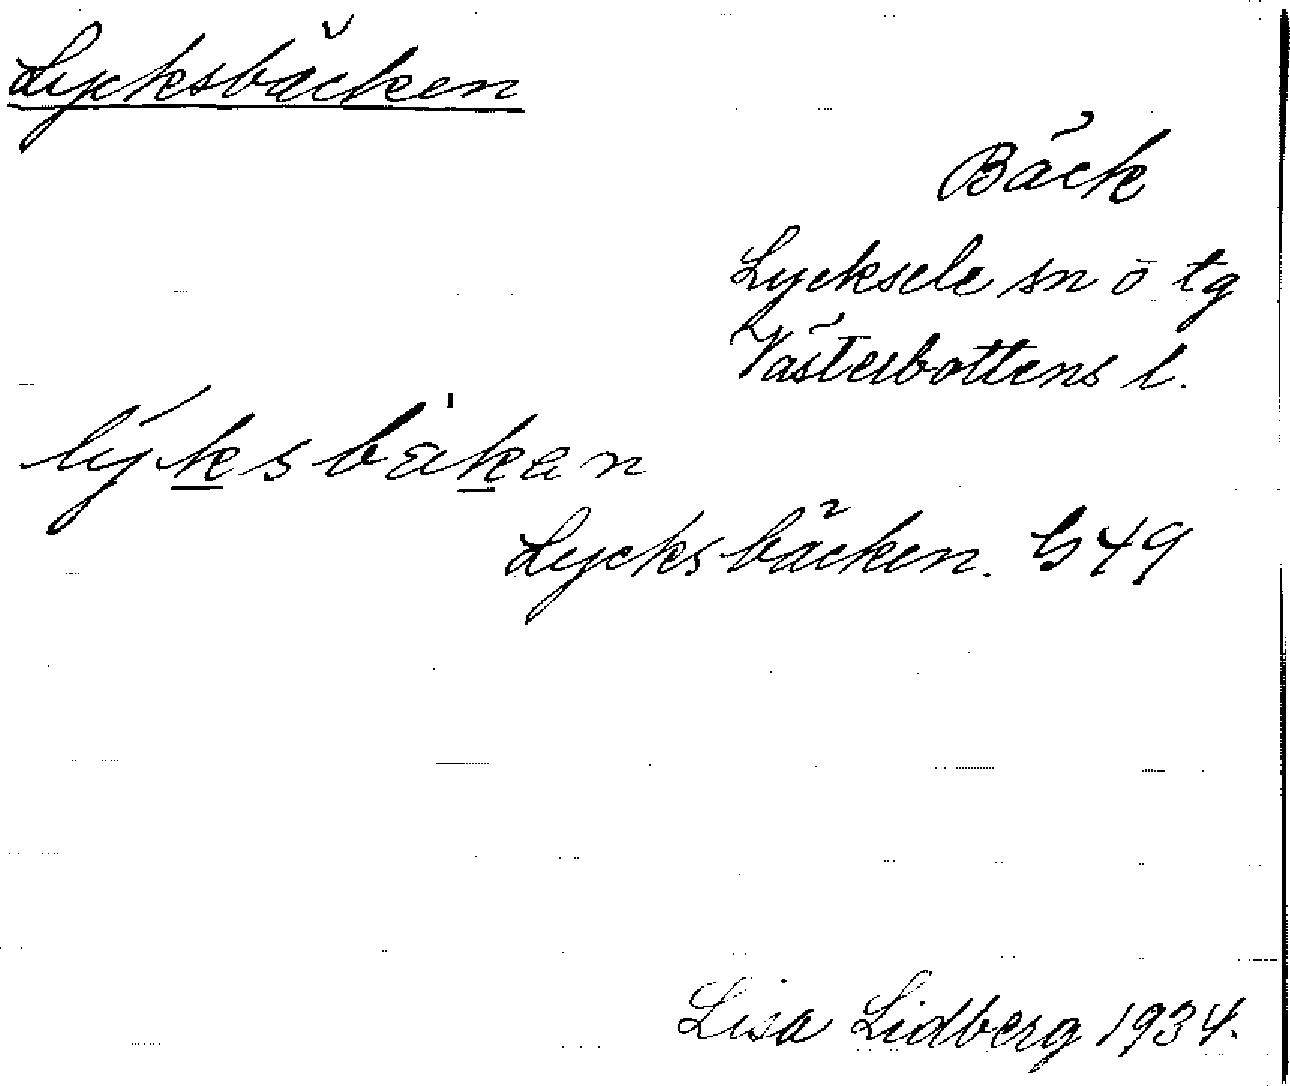 Lycksbäcken
Bäck
Lycksele sn o tg
Västerbottens l.
lýksbäkan
Lycksbäcken. G 49
Lisa Lidberg 1934.